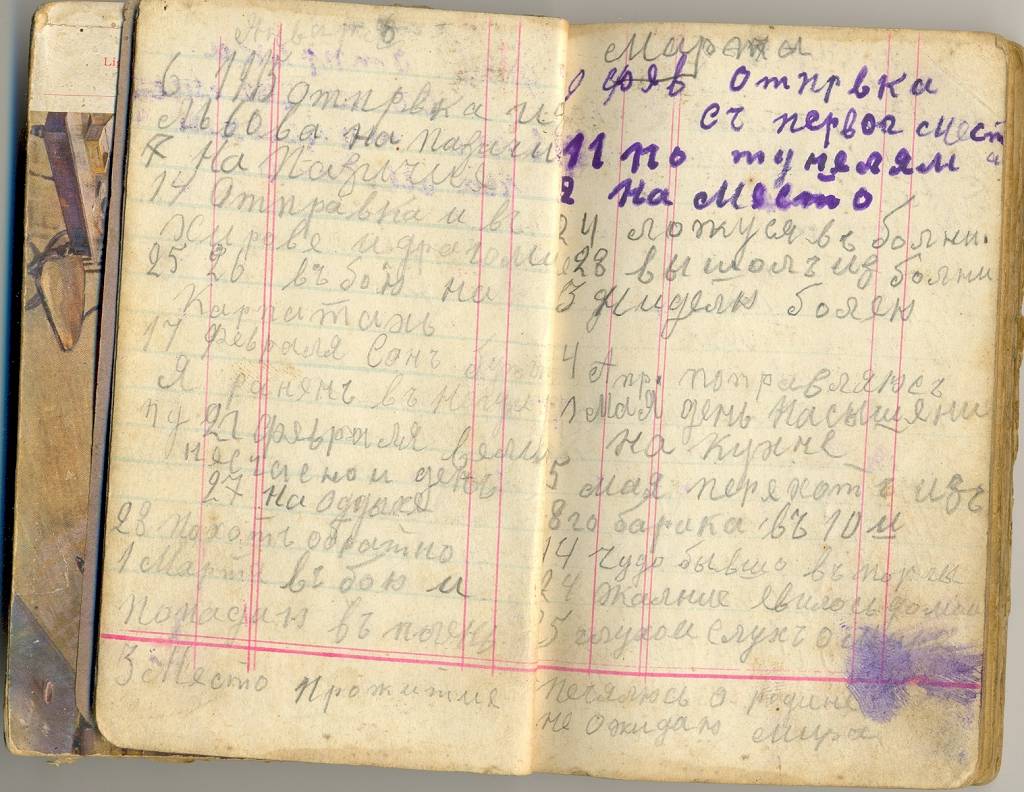 Январь
6 ЯНВ отпрвка из
Львова на позичи
7 На Позичия
14 Отправка и въ
Хирове и драгоми
25 26 въ бою на
Карпатахъ
17 Февраля Сонъ
Я ранянъ въ
21 Февраля вели
несчасной день
27 на оддыхе
28 походъ обратно
1 Марта въ бою и
попадаю въ плень
3 Место прожитие
Li
Марта
фев Отпрвка
съ первог мест
а
11 по тунелям
2 на место
24 ложуся въ болни.
28 вышолъ из болни
3 Ниделю болен
4 Апр. поправляюсь
1 мая день насышени
на кухне
5 мая переход изъ
8го барака въ 10 и
14 Чудо бывшо въ
24 Жалние явилось домои
25 глухои слухъ о
печялюсь о родине
не ожидаю мира